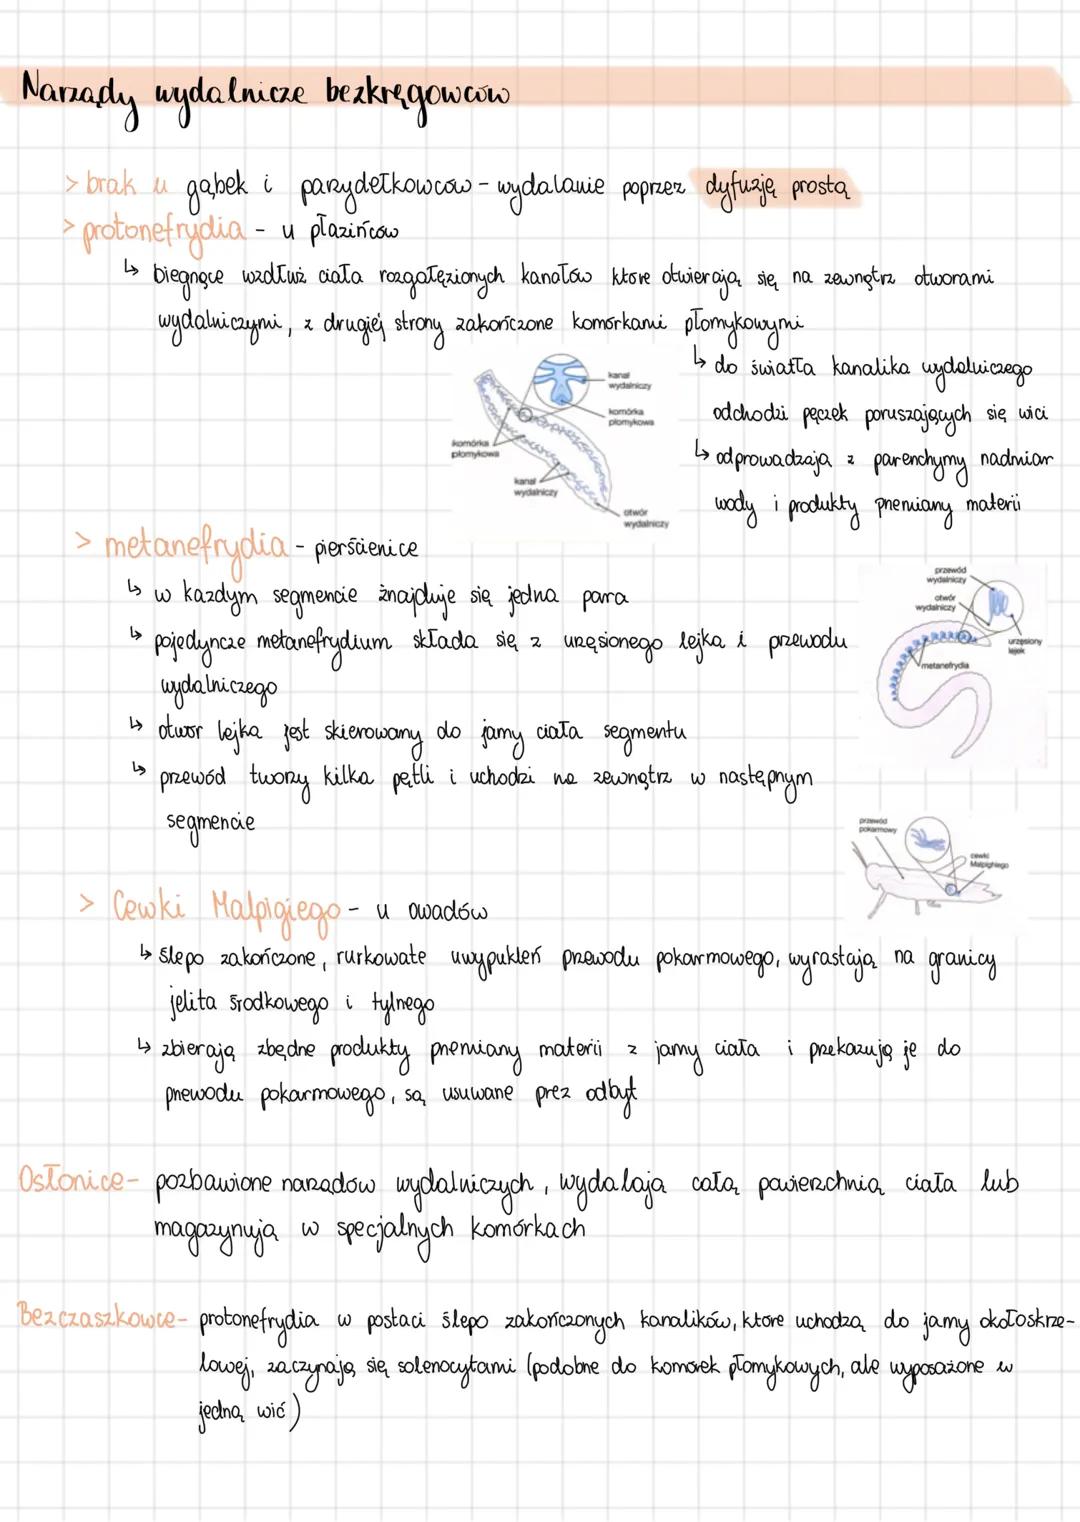 Narządy wydalnicze bezkręgowców
> brak u gąbek i parzydełkowców - wydalanie poprzez dyfuzję prostą
> protonefrydia - u płazińców
↳ biegnące wzdłuż ciała rozgałęzionych kanałów które otwierają się na zewnątrz otworami
wydalniczymi, z drugiej strony zakończone komórkami płomykowymi
↳ do światła kanalika wydalniczego
odchodzi pęczek poruszających się wici
↳ odprowadzają z parenchymy nadmiar
wody i produkty przemiany materii
kanał
wydalniczy
komórka
płomykowa
komórka
płomykowa
kanał
wydalniczy
otwór
wydalniczy
> metanefrydia - pierścienice
↳ w każdym segmencie znajduje się jedna para
↳ pojedyncze metanefrydium składa się z urzęsionego lejka i przewodu
wydalniczego
↳ otwór lejka jest skierowany do jamy ciała segmentu
↳ przewód tworzy kilka pętli i uchodzi na zewnątrz w następnym
segmencie
przewód
wydalniczy
otwór
wydalniczy
urzęsiony
lejek
metanefrydia
przewód
pokarmowy
cewki
Malpighiego
> Cewki Malpigiego - u owadów
↳ ślepo zakończone, rurkowate uwypukleń przewodu pokarmowego, wyrastają na granicy
jelita środkowego i tylnego
↳ zbierają zbędne produkty przemiany materii z jamy ciała i przekazują je do
przewodu pokarmowego, są usuwane przez odbyt
Osłonice - pozbawione narządów wydalniczych, wydalają całą powierzchnią ciała lub
magazynują w specjalnych komórkach
Bezczaszkowce - protonefrydia w postaci ślepo zakończonych kanalików, które uchodzą do jamy okołoskrze-
lowej, zaczynają się solenocytami (podobne do komórek płomykowych, ale wyposażone w
jedną wić)